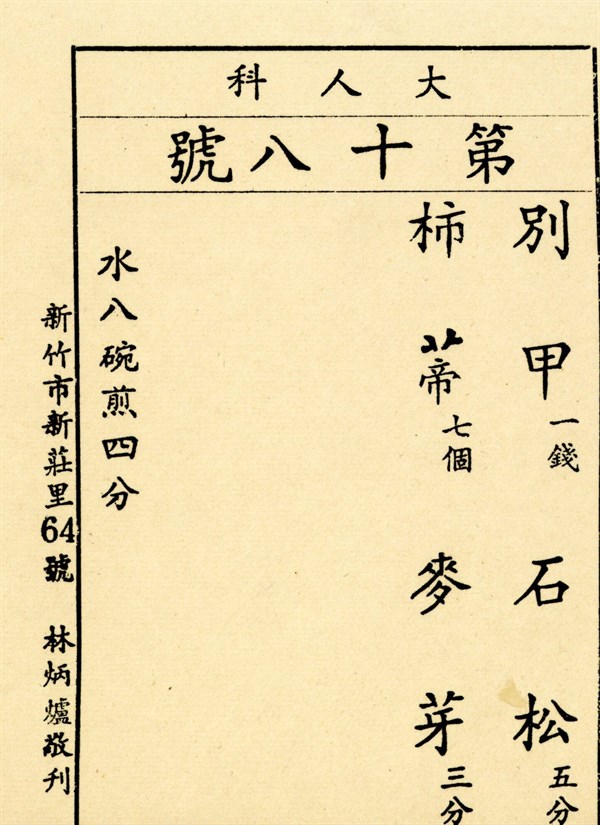 大人科
第十八號
別甲一錢 石松五分
柿蒂七個 麥芽三分
水八碗煎四分
新竹市新莊里64號 林炳爐敬刊